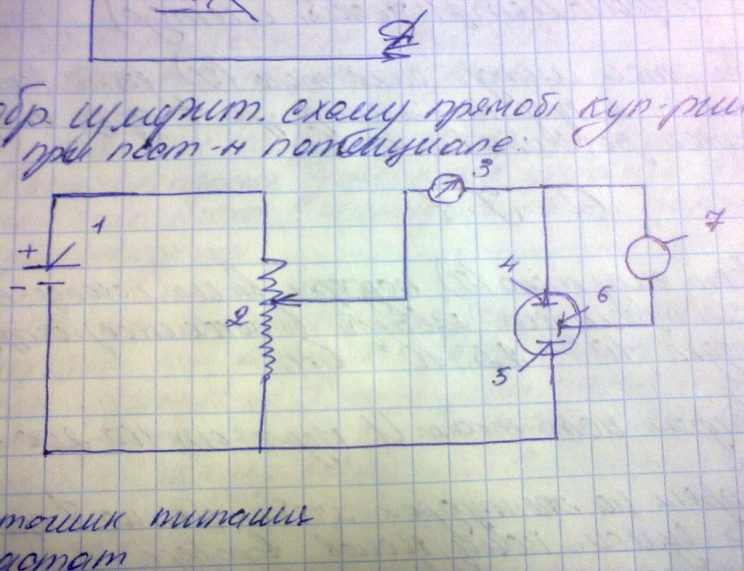 обр. измерит. схему прямой кул-рии
при пост-м потенциале:
3
1
7
+
-
4
6
2
5
точник питания
астат